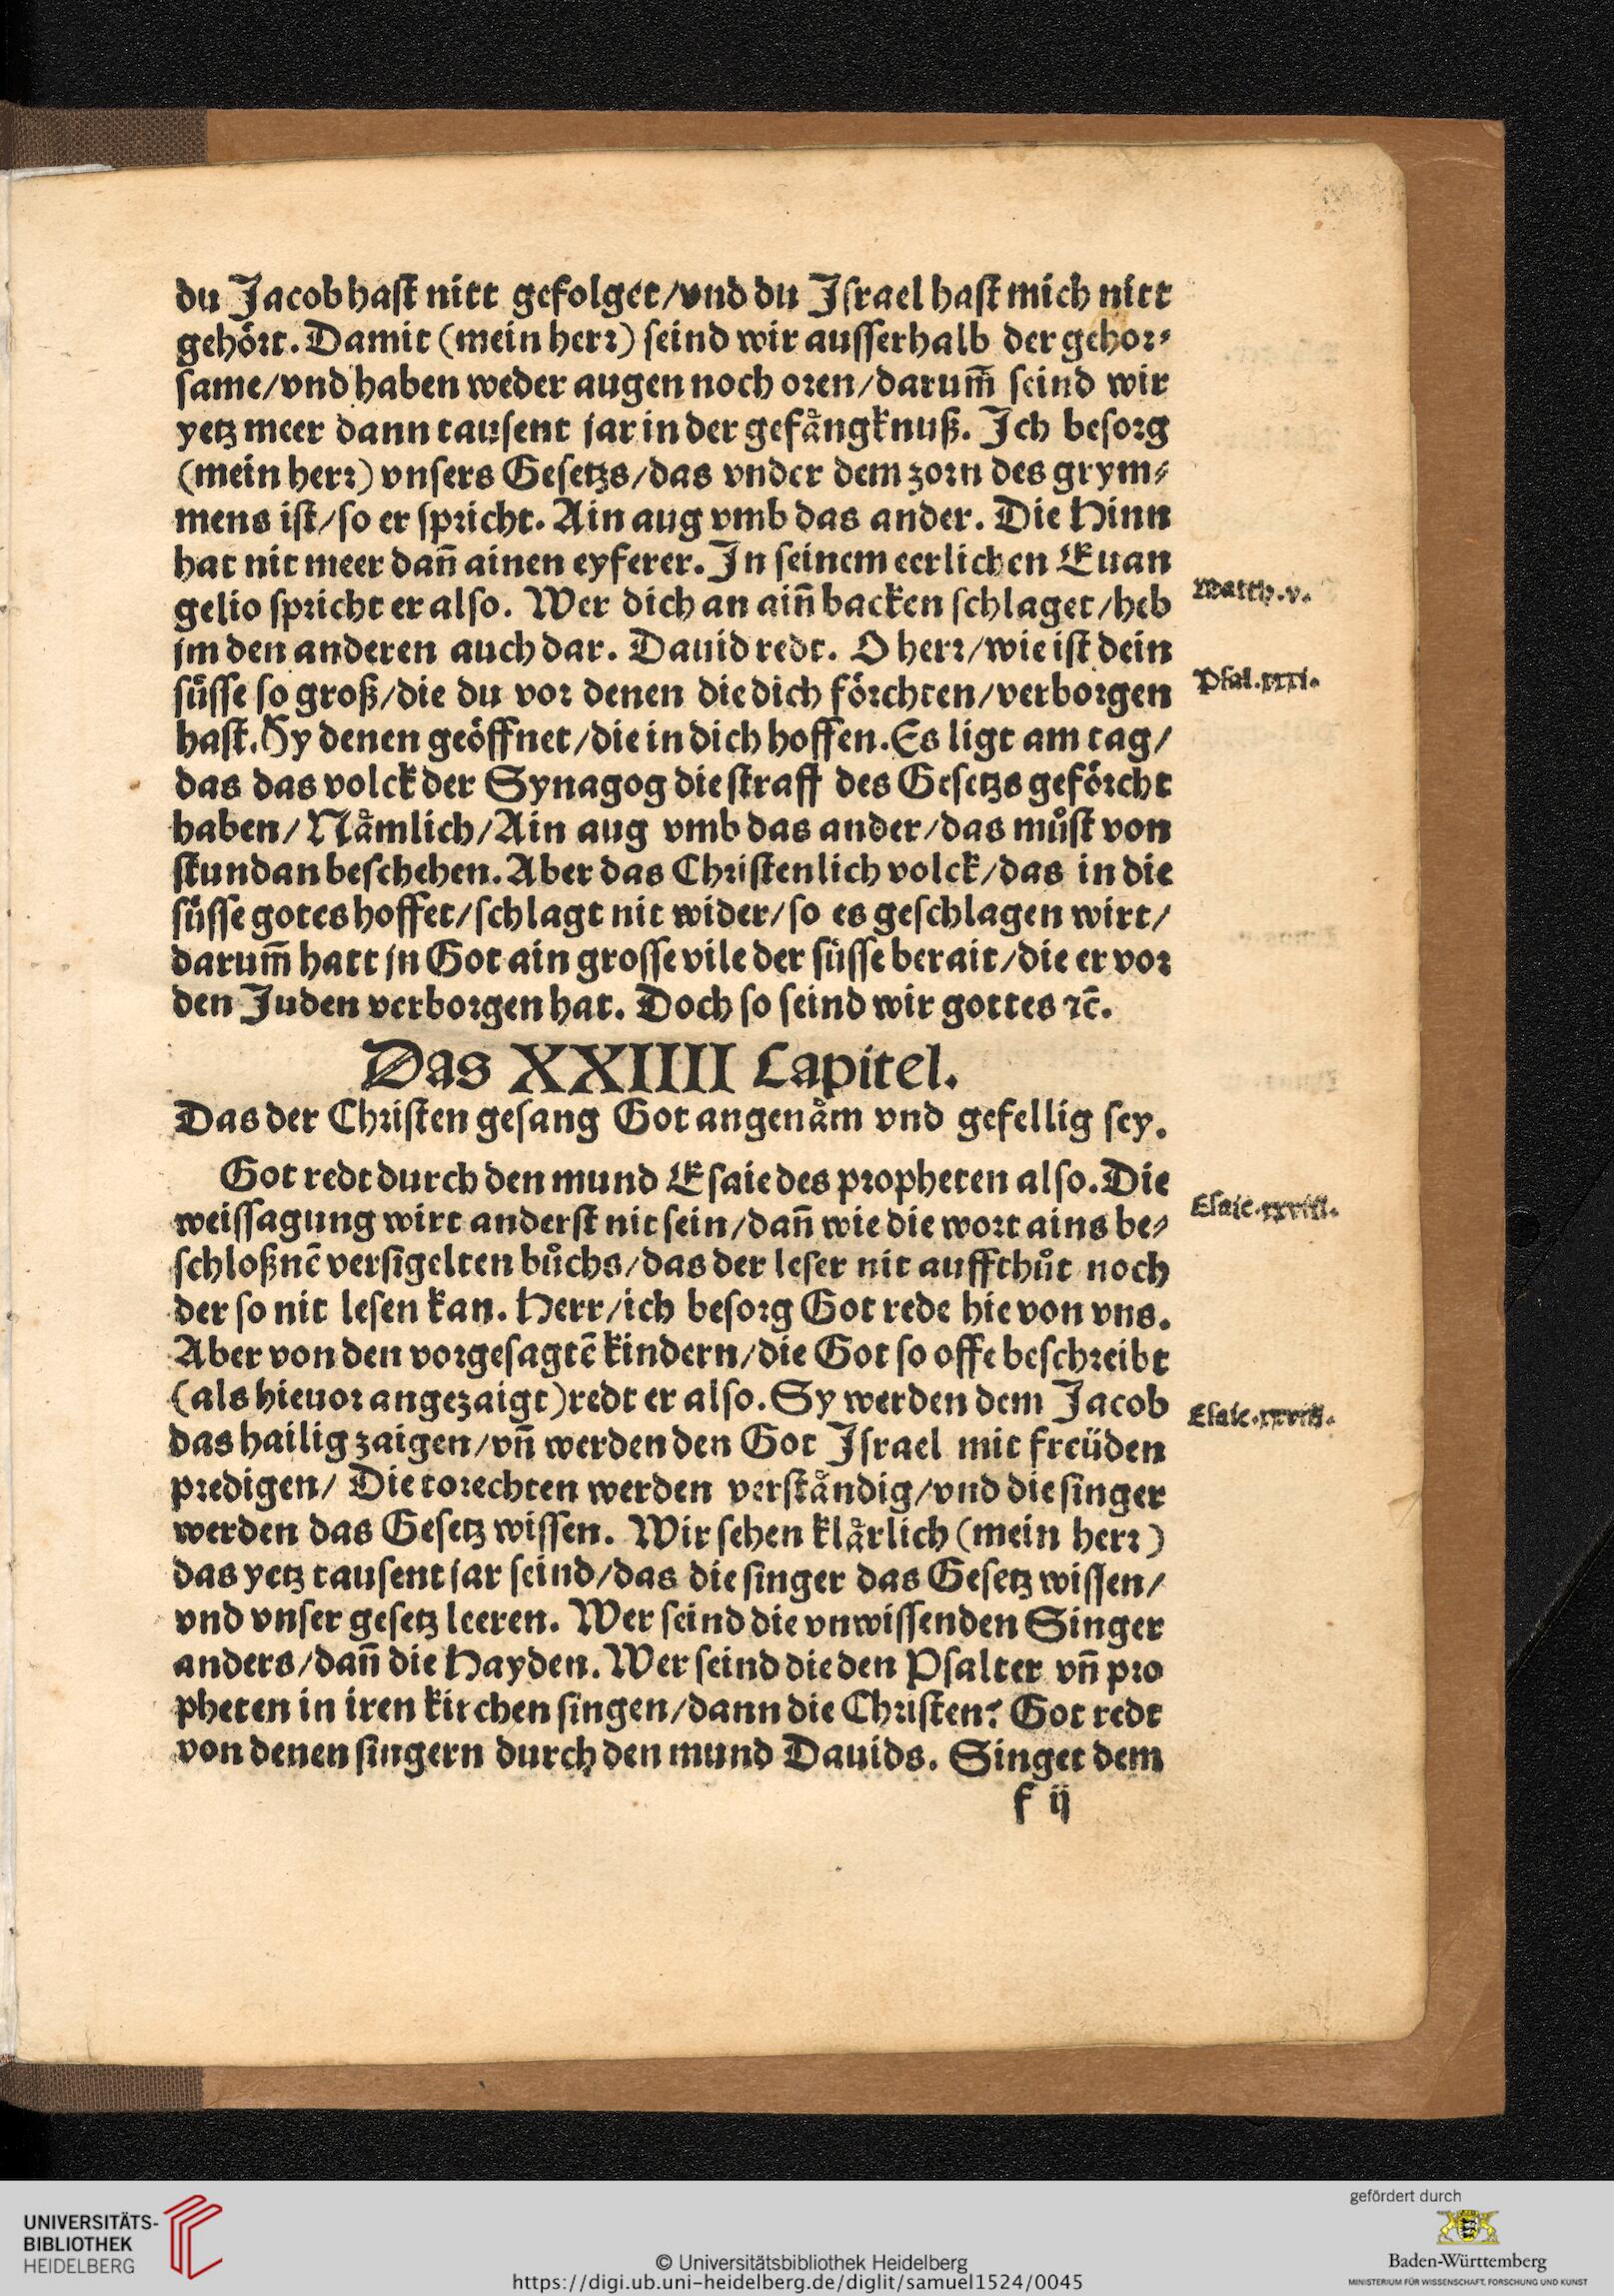 du Jacob hast nitt gefolget/vnd du Jsrael hast mich nitt
gehört. Damit (mein herr) seind wir ausserhalb der gehor⸗
same/vnd haben weder augen noch oren/darum̃ seind wir
yetz meer dann tausent jar in der gefaͤngknuß. Jch besorg
(mein herr) vnsers Gesetzs/das vnder dem zorn des grym⸗
mens ist/so er spricht. Ain aug vmb das ander. Die Hinn
hat nit meer dañ ainen eyferer. Jn seinem eerlichen Euan
gelio spricht er also. Wer dich an aiñ backen schlaget/heb
Matth.v.
jm den anderen auch dar. Dauid redt. O herr/wie ist dein
süsse so groß/die du vor denen die dich förchten/verborgen
Psal.xxxi.
hast. Hy denen geöffnet/die in dich hoffen. Es ligt am tag/
das das volck der Synagog die straff des Gesetzs geförcht
haben/Naͤmlich/Ain aug vmb das ander/das muͦst von
stundan beschehen. Aber das Christenlich volck/das in die
süsse gotes hoffet/schlagt nit wider/so es geschlagen wirt/
darum̃ hatt jn Got ain grosse vile der süsse berait/die er vor
den Juden verborgen hat. Doch so seind wir gottes ⁊c̃.
Das XXIIII Capitel.
Das der Christen gesang Got angenaͤm vnd gefellig sey.
Got redt durch den mund Esaie des propheten also. Die
weissagung wirt anderst nit sein/dañ wie die wort ains be⸗
Esaie.xxviii.
schloßnẽ versigelten buͦchs/das der leser nit auffthuͦt noch
der so nit lesen kan. Herr/ich besorg Got rede hie von vns.
Aber von den vorgesagtẽ kindern/die Got so offe beschreibt
(als hieuor angezaigt)redt er also. Sy werden dem Jacob
Esaie.xxviii.
das hailig zaigen/vñ werden den Got Jsrael mit freüden
predigen/ Die torechten werden verstaͤndig/vnd die singer
werden das Gesetz wissen. Wir sehen klaͤrlich (mein herr)
das yetz tausent jar seind/das die singer das Gesetz wissen/
vnd vnser gesetz leeren. Wer seind die vnwissenden Singer
anders/dañ die Hayden. Wer seind die den Psalter vñ pro
pheten in iren kirchen singen/dann die Christen? Got redt
von denen singern durch den mund Dauids. Singet dem
f ij
UNIVERSITÄTS-
BIBLIOTHEK
HEIDELBERG
© Universitätsbibliothek Heidelberg
https://digi.ub.uni-heidelberg.de/diglit/samuel1524/0045
gefördert durch
Baden-Württemberg
MINISTERIUM FÜR WISSENSCHAFT, FORSCHUNG UND KUNST